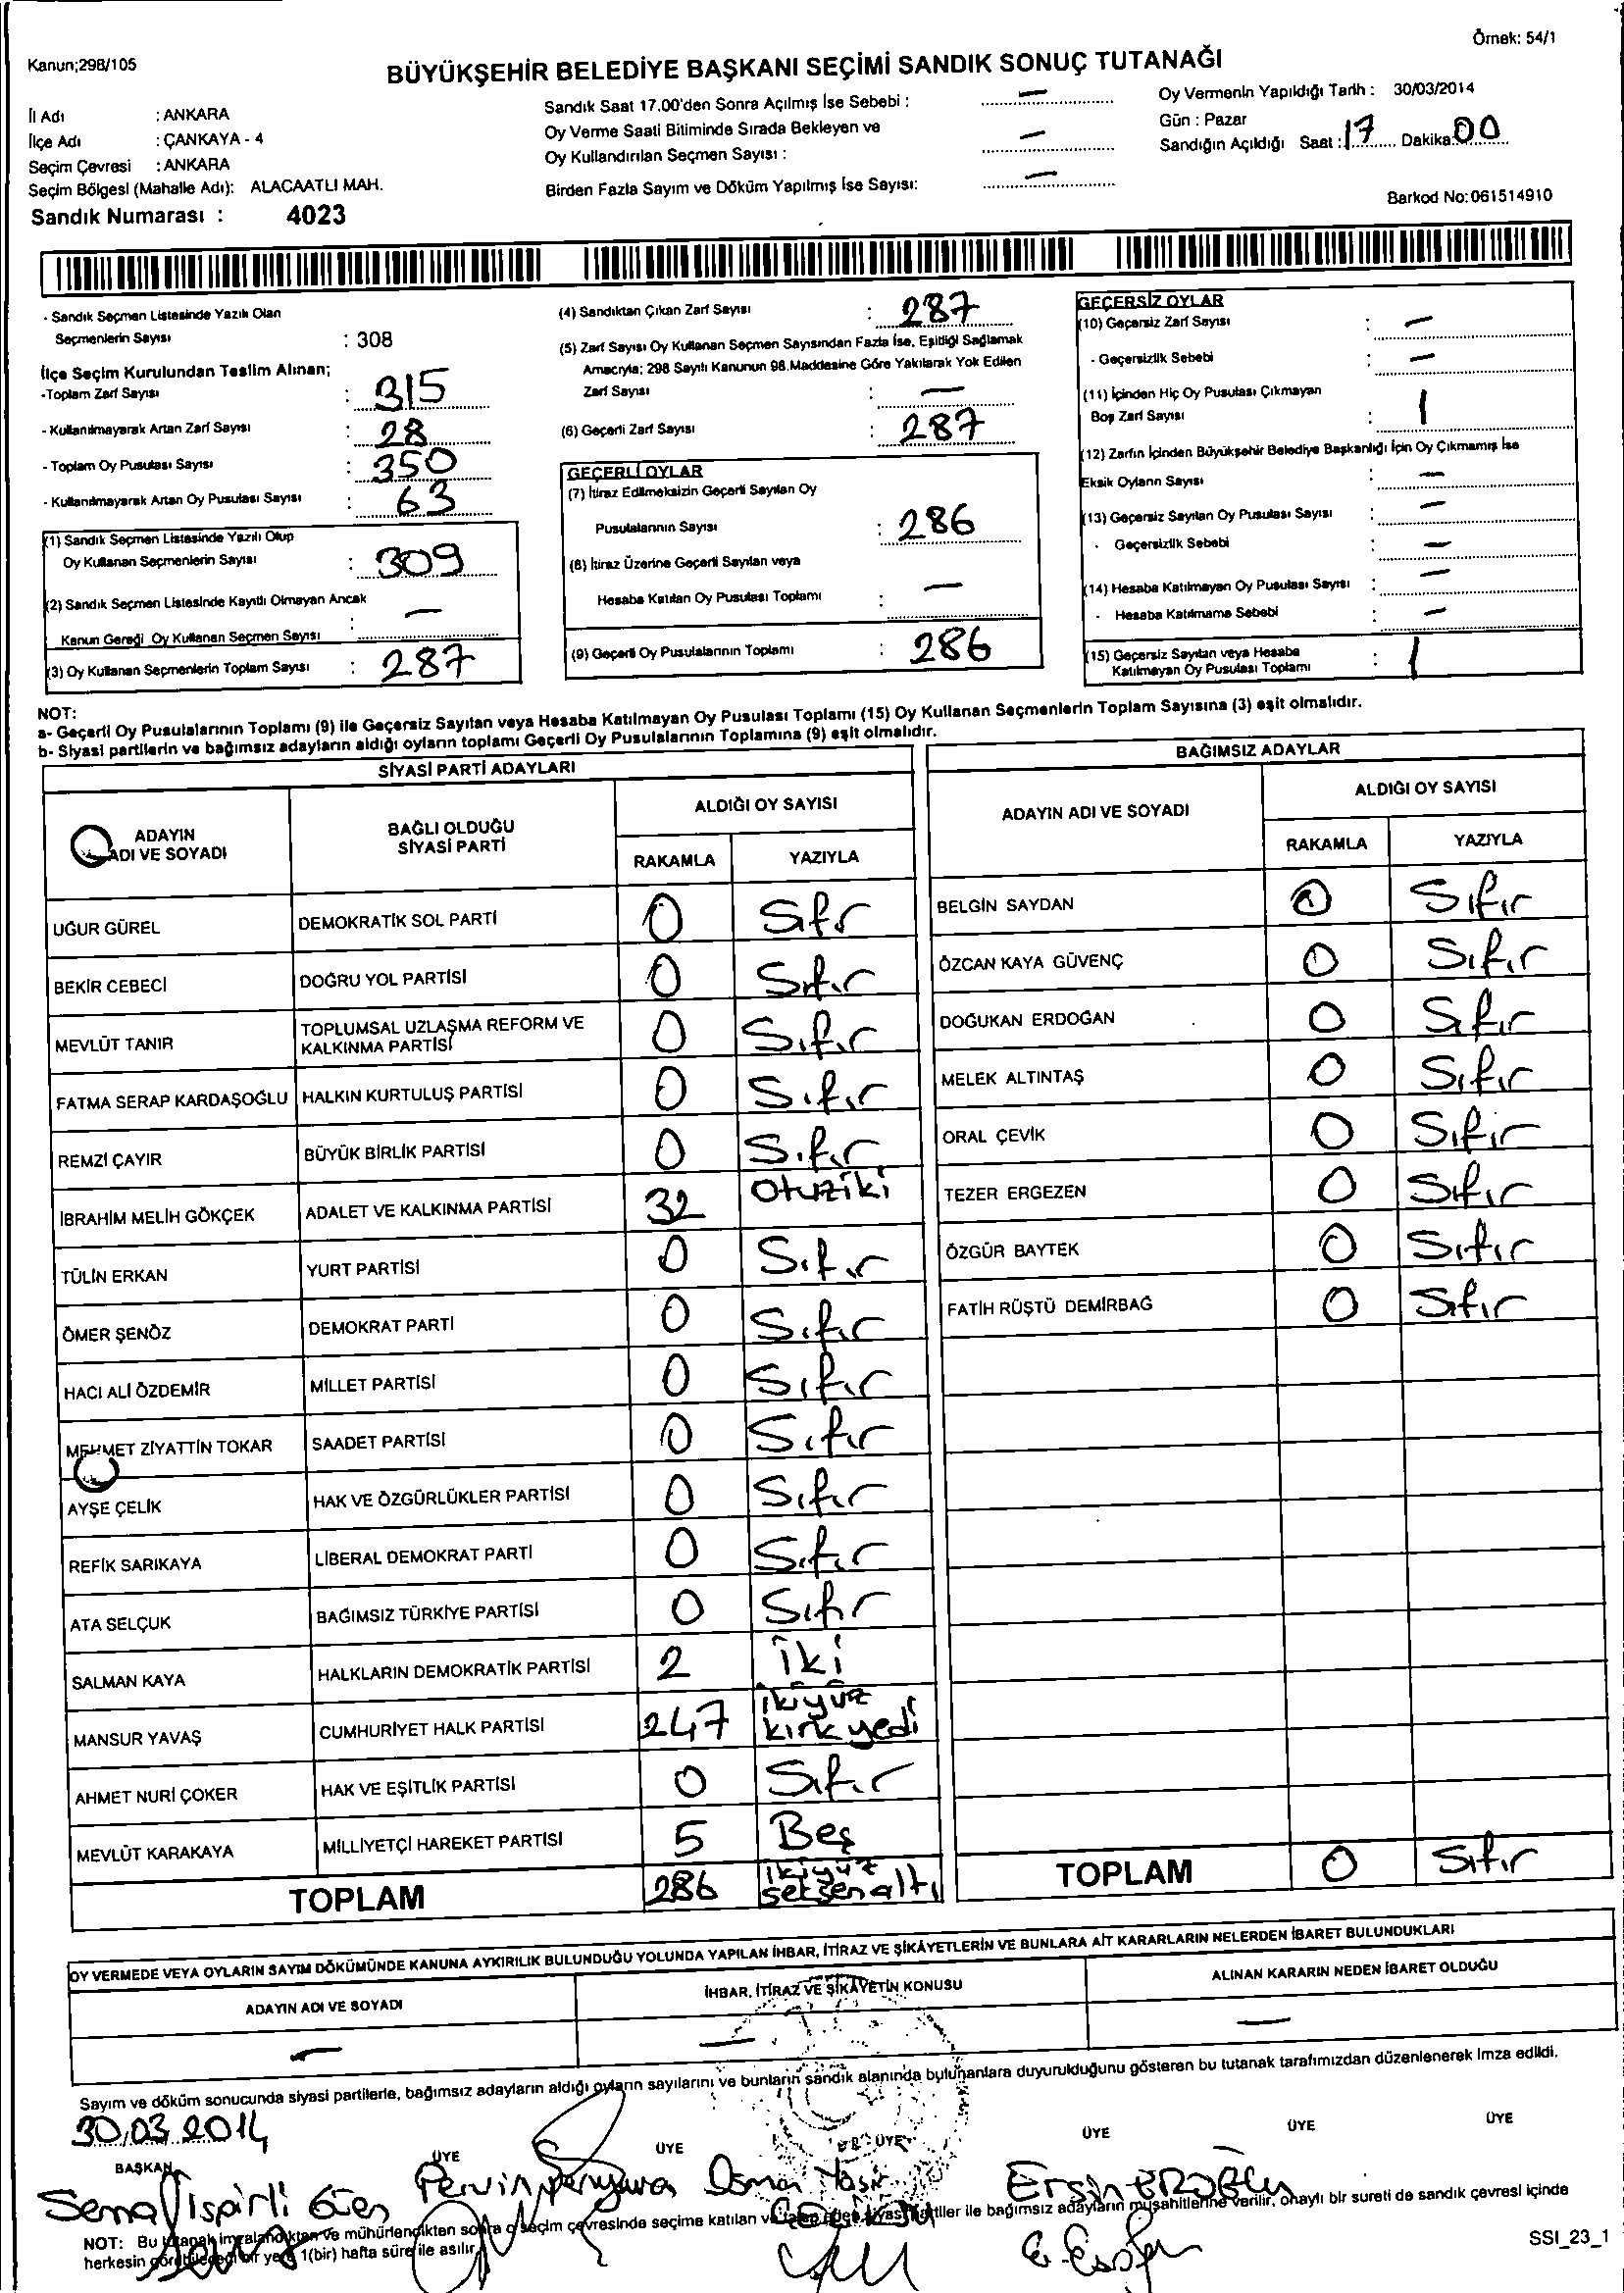 Örnek: 54/1
Kanun;298/105
BÜYÜKŞEHİR BELEDİYE BAŞKANI SEÇİMİ SANDIK SONUÇ TUTANAĞI
İl Adı : ANKARA
İlçe Adı : ÇANKAYA - 4
Seçim Çevresi : ANKARA
Seçim Bölgesi (Mahalle Adı): ALACAATLI MAH.
Sandık Numarası : 4023
Sandık Saat 17.00'den Sonra Açılmış İse Sebebi : —
Oy Verme Saati Bitiminde Sırada Bekleyen ve
Oy Kullandırılan Seçmen Sayısı : —
Birden Fazla Sayım ve Döküm Yapılmış İse Sayısı: —
Oy Vermenin Yapıldığı Tarih : 30/03/2014
Gün : Pazar
Sandığın Açıldığı Saat : 17 Dakika: 00
Barkod No: 061514910
- Sandık Seçmen Listesinde Yazılı Olan
Seçmenlerin Sayısı : 308
İlçe Seçim Kurulundan Teslim Alınan;
-Toplam Zarf Sayısı : 315
- Kullanılmayarak Artan Zarf Sayısı : 28
- Toplam Oy Pusulası Sayısı : 350
- Kullanılmayarak Artan Oy Pusulası Sayısı : 63
(1) Sandık Seçmen Listesinde Yazılı Olup
Oy Kullanan Seçmenlerin Sayısı : 309
(2) Sandık Seçmen Listesinde Kayıtlı Olmayan Ancak
Kanun Gereği Oy Kullanan Seçmen Sayısı : —
(3) Oy Kullanan Seçmenlerin Toplam Sayısı : 287
(4) Sandıktan Çıkan Zarf Sayısı : 287
(5) Zarf Sayısı Oy Kullanan Seçmen Sayısından Fazla İse, Eşitliği Sağlamak
Amacıyla; 298 Sayılı Kanunun 98.Maddesine Göre Yakılarak Yok Edilen
Zarf Sayısı : —
(6) Geçerli Zarf Sayısı : 287
GEÇERLİ OYLAR
(7) İtiraz Edilmeksizin Geçerli Sayılan Oy
Pusulalarının Sayısı : 286
(8) İtiraz Üzerine Geçerli Sayılan veya
Hesaba Katılan Oy Pusulası Toplamı : —
(9) Geçerli Oy Pusulalarının Toplamı : 286
GEÇERSİZ OYLAR
(10) Geçersiz Zarf Sayısı : —
- Geçersizlik Sebebi : —
(11) İçinden Hiç Oy Pusulası Çıkmayan
Boş Zarf Sayısı : 1
(12) Zarfın İçinden Büyükşehir Belediye Başkanlığı İçin Oy Çıkmamış İse
Eksik Oyların Sayısı : —
(13) Geçersiz Sayılan Oy Pusulası Sayısı : —
- Geçersizlik Sebebi : —
(14) Hesaba Katılmayan Oy Pusulası Sayısı : —
- Hesaba Katılmama Sebebi : —
(15) Geçersiz Sayılan veya Hesaba
Katılmayan Oy Pusulası Toplamı : 1
NOT:
a- Geçerli Oy Pusulalarının Toplamı (9) ile Geçersiz Sayılan veya Hesaba Katılmayan Oy Pusulası Toplamı (15) Oy Kullanan Seçmenlerin Toplam Sayısına (3) eşit olmalıdır.
b- Siyasi partilerin ve bağımsız adayların aldığı oyların toplamı Geçerli Oy Pusulalarının Toplamına (9) eşit olmalıdır.
SİYASİ PARTİ ADAYLARI
ADAYIN
ADI VE SOYADI
BAĞLI OLDUĞU
SİYASİ PARTİ
ALDIĞI OY SAYISI
RAKAMLA YAZIYLA
UĞUR GÜREL DEMOKRATİK SOL PARTİ 0 Sıfr
BEKİR CEBECİ DOĞRU YOL PARTİSİ 0 Sıfır
MEVLÜT TANIR TOPLUMSAL UZLAŞMA REFORM VE
KALKINMA PARTİSİ 0 Sıfır
FATMA SERAP KARDAŞOĞLU HALKIN KURTULUŞ PARTİSİ 0 Sıfır
REMZİ ÇAYIR BÜYÜK BİRLİK PARTİSİ 0 Sıfır
İBRAHİM MELİH GÖKÇEK ADALET VE KALKINMA PARTİSİ 32 otuziki
TÜLİN ERKAN YURT PARTİSİ 0 Sıfır
ÖMER ŞENÖZ DEMOKRAT PARTİ 0 Sıfır
HACI ALİ ÖZDEMİR MİLLET PARTİSİ 0 Sıfır
MEHMET ZİYATTİN TOKAR SAADET PARTİSİ 0 Sıfır
AYŞE ÇELİK HAK VE ÖZGÜRLÜKLER PARTİSİ 0 Sıfır
REFİK SARIKAYA LİBERAL DEMOKRAT PARTİ 0 Sıfır
ATA SELÇUK BAĞIMSIZ TÜRKİYE PARTİSİ 0 Sıfır
SALMAN KAYA HALKLARIN DEMOKRATİK PARTİSİ 2 İki
MANSUR YAVAŞ CUMHURİYET HALK PARTİSİ 247 ikiyüz
kırkyedi
AHMET NURİ ÇOKER HAK VE EŞİTLİK PARTİSİ 0 Sıfır
MEVLÜT KARAKAYA MİLLİYETÇİ HAREKET PARTİSİ 5 Beş
TOPLAM 286 ikiyüz
seksenaltı
BAĞIMSIZ ADAYLAR
ADAYIN ADI VE SOYADI
ALDIĞI OY SAYISI
RAKAMLA YAZIYLA
BELGİN SAYDAN 0 Sıfır
ÖZCAN KAYA GÜVENÇ 0 Sıfır
DOĞUKAN ERDOĞAN 0 Sıfır
MELEK ALTINTAŞ 0 Sıfır
ORAL ÇEVİK 0 Sıfır
TEZER ERGEZEN 0 Sıfır
ÖZGÜR BAYTEK 0 Sıfır
FATİH RÜŞTÜ DEMİRBAĞ 0 Sıfır
TOPLAM 0 Sıfır
OY VERMEDE VEYA OYLARIN SAYIM DÖKÜMÜNDE KANUNA AYKIRILIK BULUNDUĞU YOLUNDA YAPILAN İHBAR, İTİRAZ VE ŞİKÂYETLERİN VE BUNLARA AİT KARARLARIN NELERDEN İBARET BULUNDUKLARI
ADAYIN ADI VE SOYADI
İHBAR, İTİRAZ VE ŞİKÂYETİN KONUSU
ALINAN KARARIN NEDEN İBARET OLDUĞU
— — —
Sayım ve döküm sonucunda siyasi partilerle, bağımsız adayların aldığı oyların sayılarını ve bunların sandık alanında bulunanlara duyurulduğunu gösteren bu tutanak tarafımızdan düzenlenerek imza edildi.
30.03.2014
BAŞKAN ÜYE ÜYE ÜYE ÜYE ÜYE ÜYE
Sema Pervin Ersin EROĞLU
NOT: Bu tutanak imzalandıktan ve mühürlendikten sonra o seçim çevresinde seçime katılan ve talep eden siyasi partiler ile bağımsız adayların müşahitlerine verilir, onaylı bir sureti de sandık çevresi içinde
herkesin görebileceği bir yere 1(bir) hafta süre ile asılır.
SSI_23_1